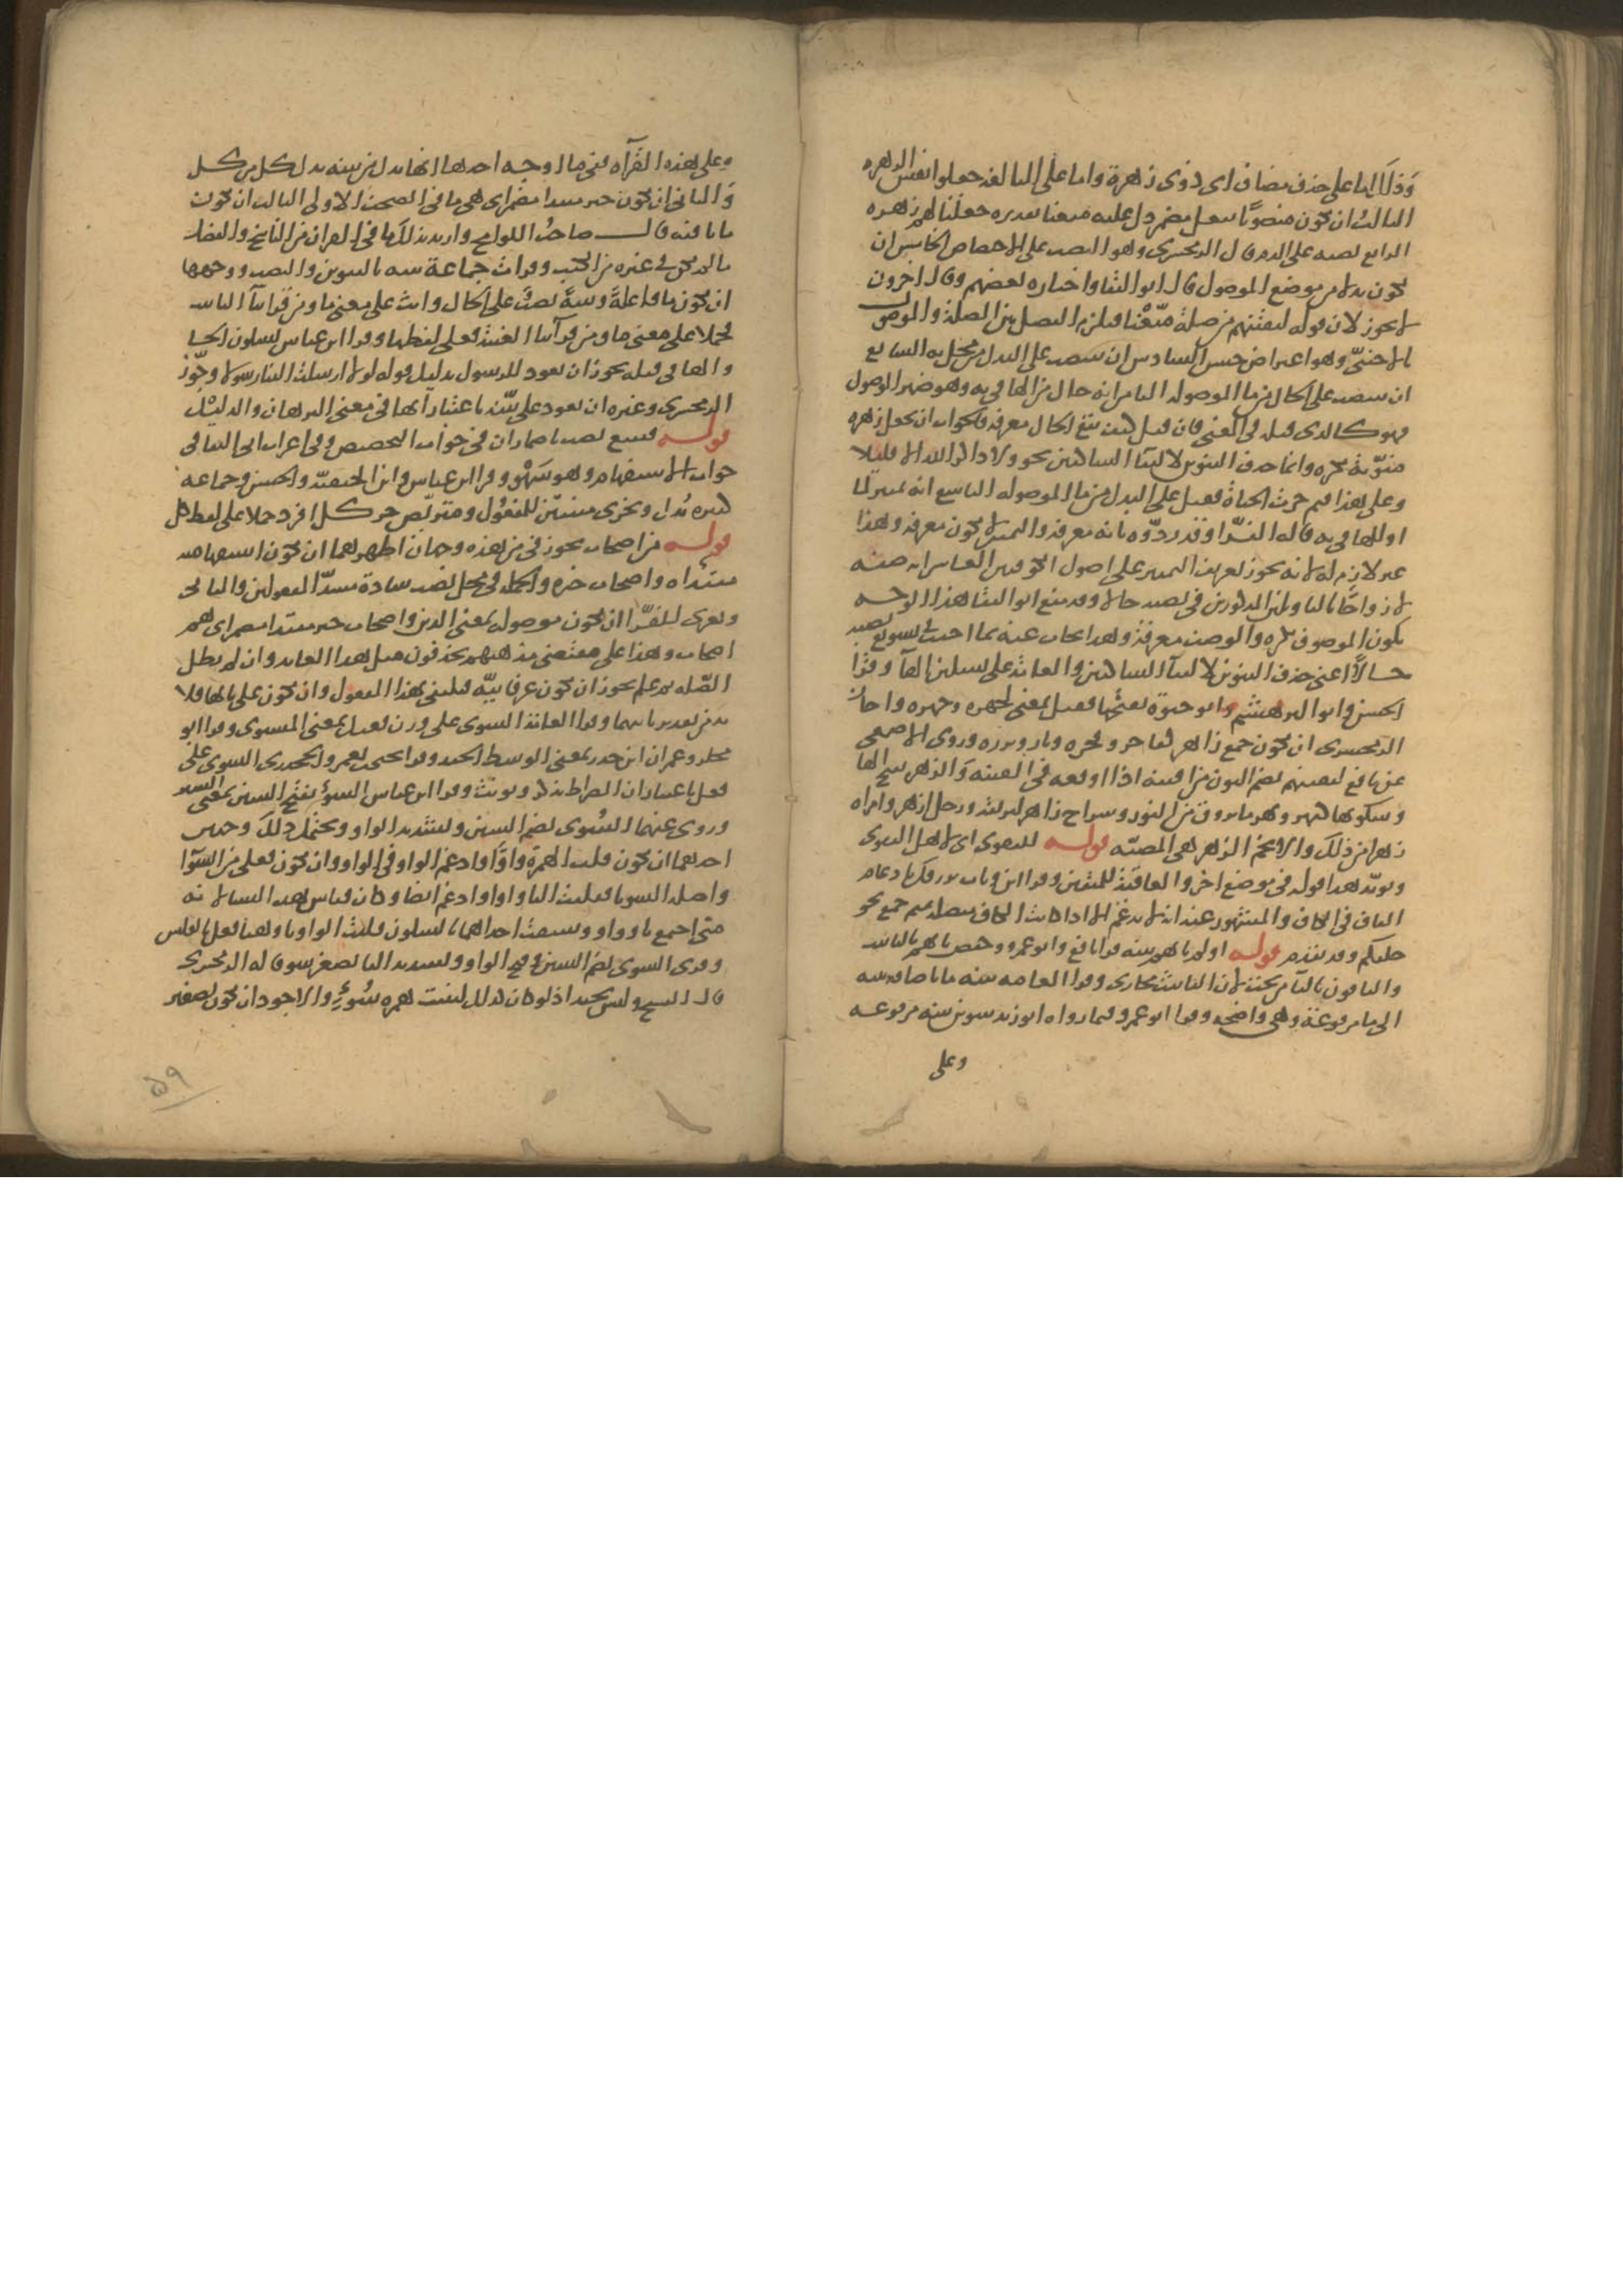 وذلك اما على حذف مضاف اى ذوى زهرة واما على المبالغه جعلوا نفس الزهره
الثالث ان يكون منصوبًا بفعل مضمر دل عليه متعنا تقديره جعلنا لهم زهره
الرابع نصبه على الذم قال الزمخشرى وهو النصب على الاختصاص الخامس ان
يكون بدلا من موضع الموصول قال ابو البقا واختاره بعضهم وقال اخرون
لا يجوز لان قوله لنفتنهم من صلة متّعْنا فيلزم الفصل بين الصلة والموصول
بالاجنبىّ وهو اعتراض حسن السادس ان ينتصب على البدل من محل به السابع
ان ينتصب على الحال من ما الموصوله الثامن انه حال من الها فى به وهو ضمير الموصول
فهو كالذى قبله فى المعنى فان قيل كيف تقع الحال معرفه فالجواب ان تجعل زهره
منوّنة نكره وانما حذف التنوين لالتقا الساكنين نحو ولا ذاكر الله الا قليلا
وعلى هذا فبم جرت الحياة فقيل على البدل من ما الموصوله التاسع انه تمييز لما
او للها فى به قاله الفرّا وقد ردّوه بانه معرفه والتمييز لا يكون معرفه وهذا
غير لازم له لانه يجوز تعريف التمييز على اصول الكوفيين العاشر انه صفة
لازواجًا بالتاويلين المذكورين فى نصبه حالا وقد منع ابو البقا هذا الوجه
بكون الموصوف نكره والوصف معرفة وهذا يجاب عنه بما اجيب فى تسويغ نصبه
حالاً اعنى حذف التنوين لالتقا الساكنين والعامه على تسكين الها وقرا
الحسن وابو البرهسم وابو حيوة بفتحها فقيل بمعنى كجهره وجهره واجاز
الزمخشرى ان يكون جمع زاهر كفاجر وفجره وبار وبرره وروى الاصمعى
عن نافع لنفتنهم بضم النون من افتنه اذا اوقعه فى الفتنه والزهر بفتح الها
وسكونها كنهر ونهر ما يروق من النور وسراج زاهر لبريقه ورجل ازهر وامراه
زهرا من ذلك والانجم الزهر هى المضيّه قوله للتقوى اى لاهل التقوى
ويؤيّد هذا قوله فى موضع اخر والعاقبة للمتقين وقرا ابن وثاب نرزقك بادغام
القاف فى الكاف والمشهور عنه انه لا يدغم الا اذا كانت الكاف متصله بميم جمع نحو
خلقكم وقد تقدم قوله اولم ياتهم بينه قرا نافع وابو عمرو وحفص تاتهم بالتا
والباقون باليا من تحت لان التانيث مجازى وقرا العامه بينه ما باضافه بينه
الى ما مرفوعة وهى واضحه وقرا ابو عمرو فيما رواه ابو زيد بتنوين بينه مرفوعه
وعلى
وعلى هذه القرآه ففى ما اوجه احدها انها بدل من بينه بدل كل من كل
والثانى ان يكون خبر مبتدا مضمر اى هى ما فى الصحف الاولى الثالث ان يكون
ما نافيه قال صاحبُ اللوامح واريد بذلك ما فى القران من الناسخ والفصل
مما لم يكن فى غيره من الكتب وقرات جماعة بينه بالتنوين والنصب ووجهها
ان يكون ما فاعلةً وبينةً نصبٌ على الحال وانث على معنى ما ومن قرا بتآ التانيث
فحملا على معنى ما ومن قرا بيآ الغيبة فعلى لفظها وقرا ابن عباس بسكون الحا
والها فى قبله يجوز ان يعود للرسول بدليل قوله لولا ارسلت الينا رسولا وجوّز
الزمخشرى وغيره ان يعود على بيّنه باعتبار أنها فى معنى البرهان والدليل
قوله فنتبع نصب باضمار ان فى جواب التحضيض وفى اعراب ابى البقا فى
جواب الاستفهام وهو سَهْو وقرا ابن عباس وابن الحنفيّه والحسن وجماعه
كثيره نُذل ونخزى مبنيّين للمفعُول ومتربّص خبر كل افرد حملا على لفظ كل
قوله من اصحاب يجوز فى من هذه وجهان اظهرهما ان يكون استفهاميه
مبتداه واصحاب خبره والجمله فى محل نصب سادة مسدّ المفعولين والثانى
ويعزى للفرّا ان يكون موصوله بمعنى الذين واصحاب خبر مبتدا مضمر اى هم
اصحاب وهذا على مقتضى مذهبهم يحذفون مثل هذا العايد وان لم يطل
الصّله ثم علم يجوز ان يكون عرفانيّه فيكتفى بهذا المفعول وان يكون على بابها فلا
بد من تقدير ثانيهما وقرا العامة السوى على وزن فعيل بمعنى المستوى وقرا ابو
مجلز وعمران ابن حدير بمعنى الوسط الجيد وقرا يحيى بن يعمر والجحدرى السوى على
فعلى باعتبار ان الصراط يذكر ويونث وقرا ابن عباس السوءِ بفتح السين بمعنى الشر
وروى عنهما السُوى بضم السين وتشديد الواو ويحتمل ذلك وجهين
احدهما ان يكون قلب الهمزة واوًا وادغم الواو فى الواو وان يكون فعلى من السّوآ
واصله السويا فقلبت اليا واوا وادغم ايضا وكان قياس هذه السيا لانه
متى اجتمع يا وواو وسبقت احداهما بالسكون قلبت الواو يا وهنا فعل بالعكس
وقرى السوى بضم السين وفتح الواو وتشديد اليا تصغير سو قاله الزمخشرى
قال الشيخ وليس بجيد اذ لو كان كذلك لثبتت همزه سُوءٍ والاجود ان يكون تصغير
٥٩